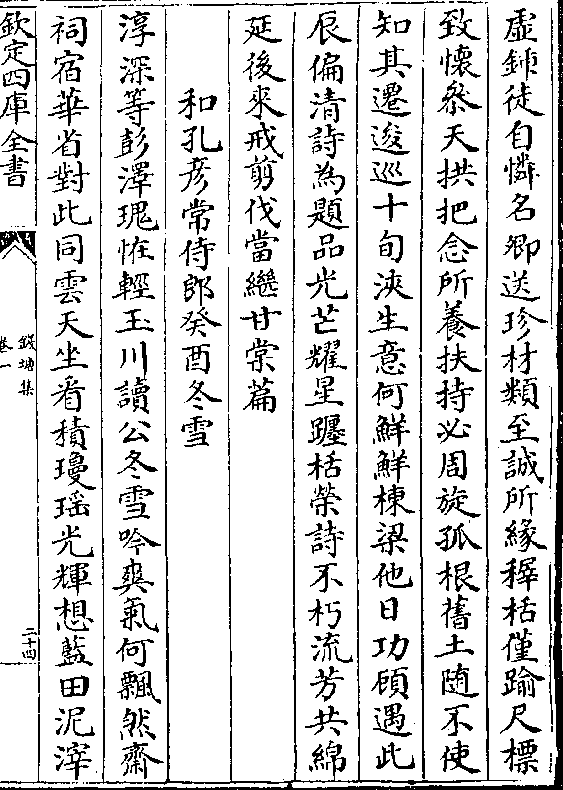 虛鉢徒自憐名卿送珍材類至誠所緣稺栝僅踰尺標
致懷參天拱把念所養扶持必周旋孤根舊土随不使
知其遷逡巡十旬浹生意何鮮鮮棟梁他日功頋遇此
辰偏清詩為題品光芒耀星躔栝榮詩不朽流芳共綿
延後來戒剪伐當繼甘棠篇
和孔彦常侍郎癸酉冬雪
淳深等彭澤瑰恠輕玉川讀公冬雪吟爽氣何飄然齋
祠宿華省對此同雲天坐看積瓊瑶光輝想藍田泥滓
欽定四庫全書
錢塘集
卷一
二十四